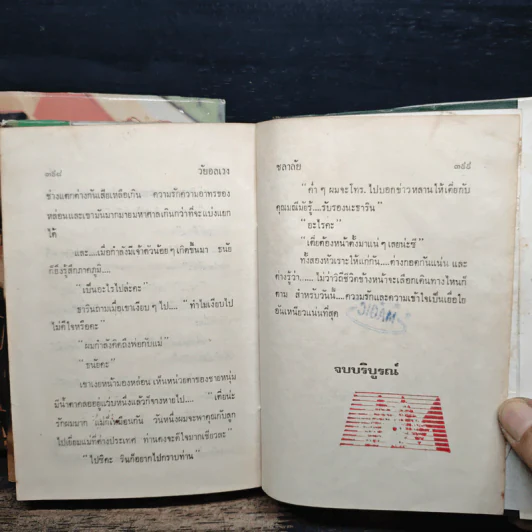 ๓๕๔ วัยอลเวง
ช่างแตกต่างกันเสียเหลือเกิน ความรักความอาทรของ
หล่อนและเขามันมากมายมหาศาลเกินกว่าที่จะแบ่งแยก
ได้
และ....เมื่อกำลังมีเจ้าตัวน้อยๆ เกิดขึ้นมา ธนัย
ก็ยิ่งรู้สึกภาคภูมิ....
“เป็นอะไรไปล่ะคะ”
ชารินถามเมื่อเขาเงียบๆ ไป.... “ทำไมเงียบไป
ไม่ดีใจหรือคะ”
“ผมกำลังคิดถึงพ่อกับแม่”
“ธนัยคะ”
เขาเงยหน้ามองหล่อน เห็นหน่วยตาของชายหนุ่ม
มีน้ำตาคลออยู่แว่บหนึ่งแล้วก็จางหายไป.... “เตี่ยน่ะ
รักผมมาก แม่ก็เหมือนกัน วันหนึ่งผมจะพาคุณกับลูก
ไปเยี่ยมแม่ที่ต่างประเทศ ท่านคงจะดีใจมากเชียวละ”
“ไปซิคะ รินก็อยากไปกราบท่าน”
ชลาลัย ๓๕๕
“ค่ำๆ ผมจะโทร. ไปบอกข่าวหลานให้เตี่ยกับ
คุณมณีมัยรู้....รับรองนะชาริน”
“อะไรคะ”
“เตี่ยต้องหน้าตั้งมาแน่ๆ เลยน่ะซี”
ทั้งสองหัวเราะให้แก่กัน....ต่างกอดกันแน่น และ
ต่างรู้ว่า.... ไม่ว่าวิถีชีวิตข้างหน้าจะเลือกเดินทางไหนก็
ตาม สำหรับวันนี้....ความรักและความเข้าใจเป็นเยื่อใย
อันเหนียวแน่นที่สุด
จบบริบูรณ์